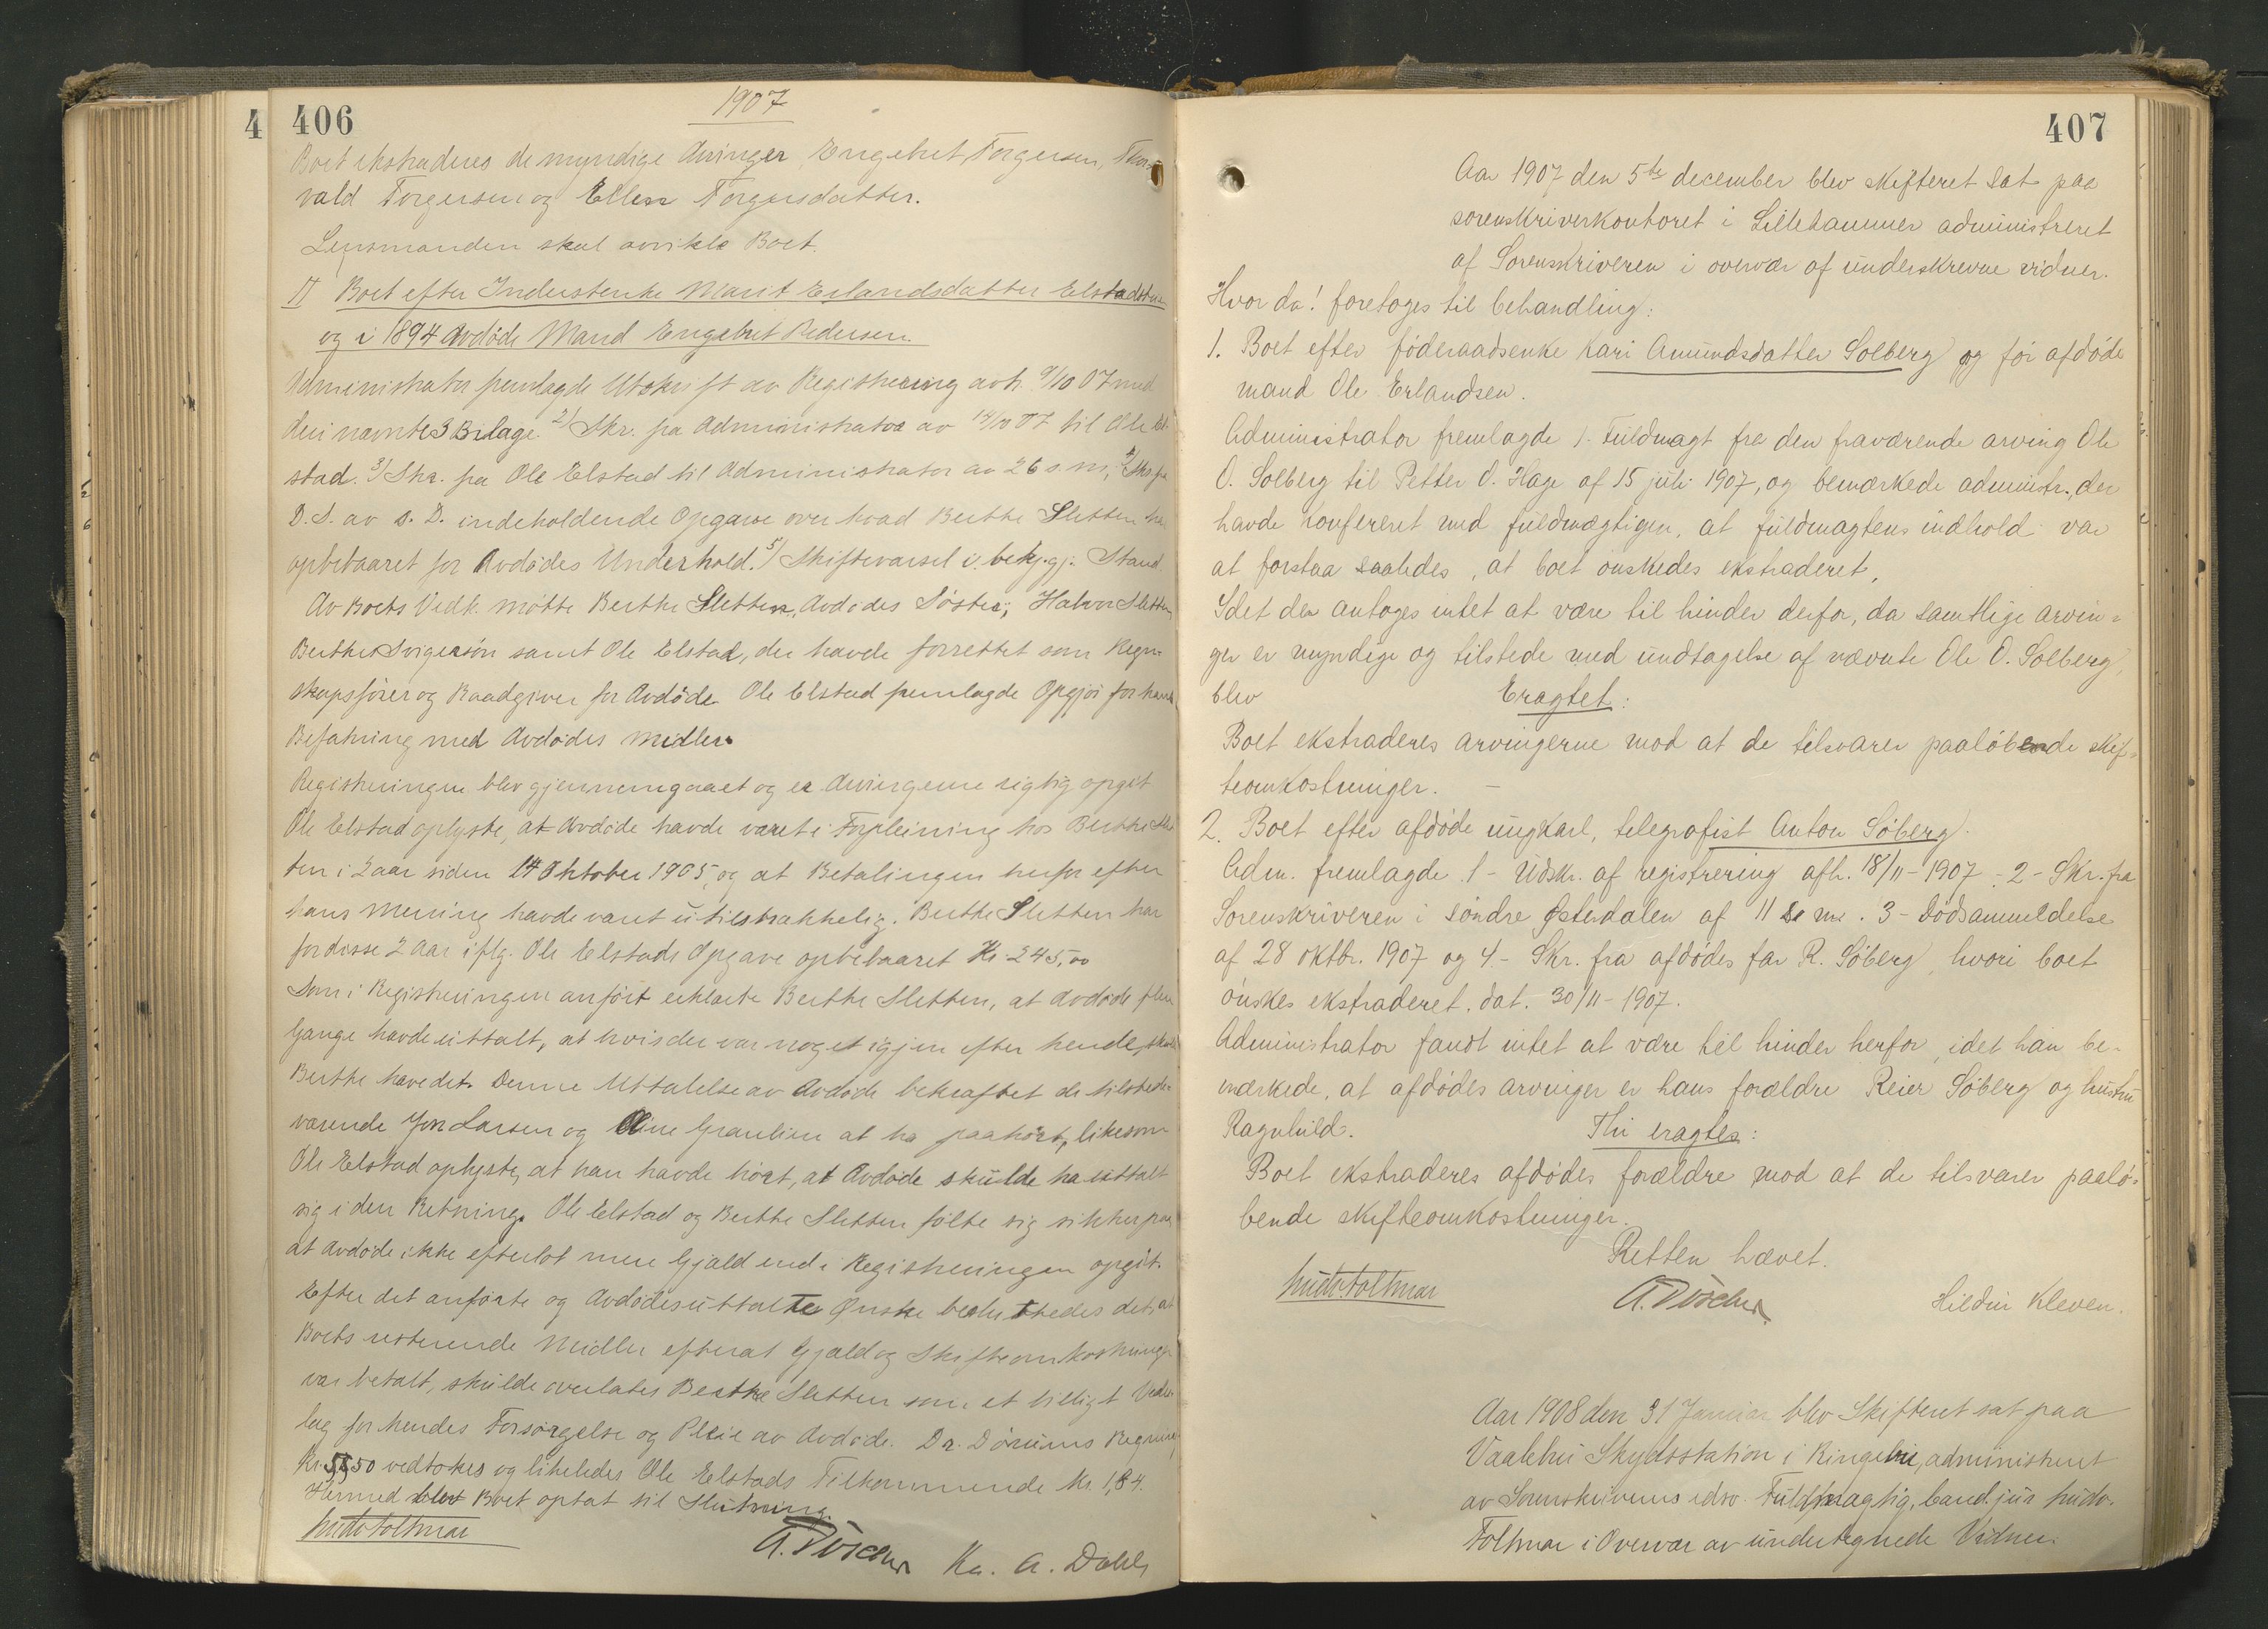 4 406
1907
Boet ekstraderes de myndige Arvinger Engebret Torgersen, Thor-
vald Torgersen og Ellen Torgersdatter.
Lensmanden skal avvikle Boet.
II Boet efter Inderstenke Marit Erlandsdatter Elstadstuen
og i 1894 avdøde Mand Engebret Pedersen.
Administrator fremlagde Utskrift av Registrering avh. 9/10 07 med
deri nævnte 3 Bilage. 2) Skr. fra Administrator av 14/10 07 til Ole El-
stad. 3) Skr. fra Ole Elstad til Administrator av 26 s. m., 4) Skr. fra
D. S. av s. D. indeholdende Opgave over hvad Berthe Sletten har
opbebaaret for Avdødes Underhold. 5) Skiftevarsel i bekj.gj. Stand.
Av Boets Vedk. møtte Berthe Sletten, Avdødes Søster, Halvor Sletten
Berthes Svigersøn samt Ole Elstad, der havde forrettet som Regn-
skapsfører og Raadgiver for Avdøde. Ole Elstad fremlagde Opgjør for hans
Befatning med Avdødes Midler.
Registreringen blev gjennemgaaet og er Arvingerne rigtig opgit
Ole Elstad oplyste, at Avdøde havde været i Forpleining hos Berthe Slet-
ten i 2 aar siden 14 Oktober 1905, og at Betalingen herfor efter
hans Mening havde været utilstrækkelig. Berthe Sletten har
for disse 2 Aar iflg. Ole Elstads Opgave opbebaaret Kr. 245,00
Som i Registreringen anført erklærte Berthe Sletten, at Avdøde flere
Gange havde uttalt, at hvis der var noget igjen efter hende, skulde
Berthe have det. Denne Uttalelse av Avdøde bekræftet de tilstede-
værende Jon Larsen og Oline Graulien at ha paahørt, likesom
Ole Elstad oplyste, at han havde hørt, at Avdøde skulde ha uttalt
sig i den Retning. Ole Elstad og Berthe Sletten følte sig sikker paa
at Avdøde ikke efterlot mere Gjæld end i Registreringen opgit.
Efter det anførte og Avdødes uttalte Ønske besluttedes det, at
Boets resterende Midler efterat Gjæld og Skifteomkostninger
var betalt, skulde overlates Berthe Sletten som et billigt Veder-
lag for hendes Forsørgelse og Pleie av Avdøde. Dr. Dörums Regning
Kr. 50 vedtokes og likeledes Ole Elstads Tilkommende Kr. 1,84.
Hermed blev Boet optat til Slutning
Ludv. Foltmar
A. Kr. A. Dahls
407
Aar 1907 den 5te december blev skifteret sat paa
sorenskriverkontoret i Lillehammer administreret
af Sorenskriveren i overvær af underskrevne vidner.
Hvor da! foretoges til behandling:
1. Boet efter føderaadsenke Kari Amundsdatter Solberg og før afdøde
mand Ole Erlandsen.
Administrator fremlagde 1. Fuldmagt fra den fraværende arving Ole
O. Solberg til Petter O. Hage af 15 juli 1907, og bemærkede administr., der
havde konfereret med fuldmægtigen, at fuldmagtens indhold var
at forstaa saaledes, at boet ønskedes ekstraderet,
Idet der antoges intet at være til hinder derfor, da samtlige arvin-
ger er myndige og tilstede med undtagelse af nævnte Ole O. Solberg,
blev Eragtet:
Boet ekstraderes arvingerne mod at de tilsvarer paaløbende skif-
teomkostninger. -
2. Boet efter afdøde ungkarl, telegrafist Anton Søberg.
Adm. fremlagde 1 - Udskr. af registrering afh. 18/11 - 1907 - 2 - Skr. fra
Sorenskriveren i søndre Østerdalen af 11 s. m. 3 - Dødsanmeldelse
af 28 oktbr. 1907 og 4 - Skr. fra afdødes far R. Søberg, hvori boet
ønskes ekstraderet. dat. 30/11 - 1907.
Administrator fandt intet at være til hinder herfor, idet han be-
mærkede, at afdødes arvinger er hans forældre Reier Søberg og hustru
Ragnhild. Thi eragtes:
Boet ekstraderes afdødes forældre mod at de tilsvarer paalø-
bende skifteomkostninger.
Retten hævet.
Ludv. Foltmar
A. Hildur Kleven.
Aar 1908 den 31 Januar blev Skifteret sat paa
Vaalebru Skydsstation i Ringebu, administreret
av Sorenskriverens edsv. Fuldmægtig, Cand. jur Ludv.
Foltmar i Overvær av undertegnede Vidner.